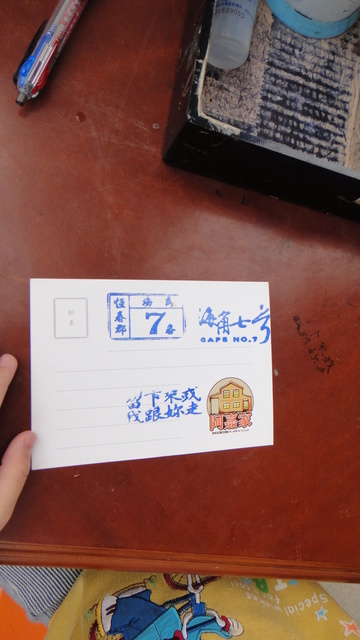 恆春郡
海角
7番
海角七号
CAPE NO.7
留下來或
我跟妳走
阿嘉家
Special